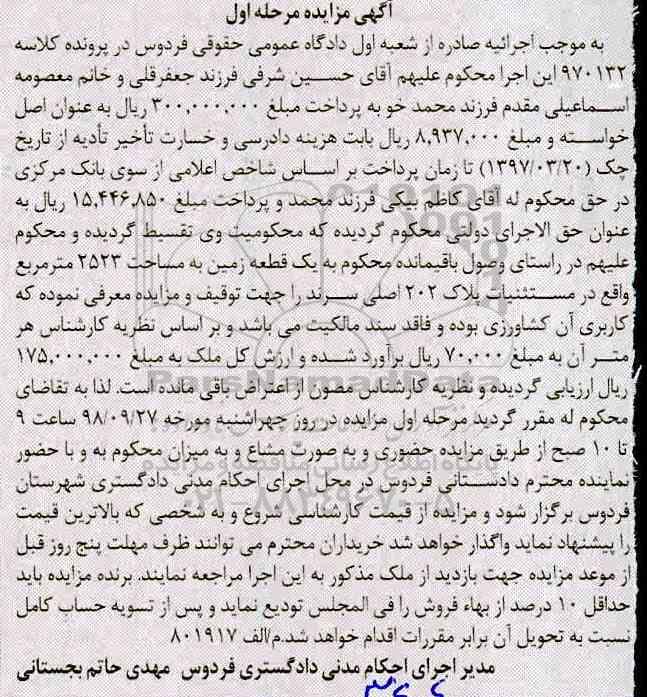 آگهی مزایده مرحله اول
به موجب اجرائیه صادره از شعبه اول دادگاه عمومی حقوقی فردوس در پرونده کلاسه
۹۷۰۱۳۲ این اجرا محکوم علیهم آقای حسین شرفی فرزند جعفرقلی و خانم معصومه
اسماعیلی مقدم فرزند محمد خو به پرداخت مبلغ ۳۰۰,۰۰۰,۰۰۰ ریال به عنوان اصل
خواسته و مبلغ ۸,۹۳۷,۰۰۰ ریال بابت هزینه دادرسی و خسارت تأخیر تأدیه از تاریخ
چک (۱۳۹۷/۰۳/۲۰) تا زمان پرداخت بر اساس شاخص اعلامی از سوی بانک مرکزی
در حق محکوم له آقای کاظم بیکی فرزند محمد و پرداخت مبلغ ۱۵,۴۴۶,۸۵۰ ریال به
عنوان حق الاجرای دولتی محکوم گردیده که محکومیت وی تقسیط گردیده و محکوم
علیهم در راستای وصول باقیمانده محکوم به یک قطعه زمین به مساحت ۲۵۲۳ مترمربع
واقع در مستثنیات پلاک ۲۰۲ اصلی سرند را جهت توقیف و مزایده معرفی نموده که
کاربری آن کشاورزی بوده و فاقد سند مالکیت می باشد و بر اساس نظریه کارشناس هر
متر آن به مبلغ ۷۰,۰۰۰ ریال برآورد شده و ارزش کل ملک به مبلغ ۱۷۵,۰۰۰,۰۰۰
ریال ارزیابی گردیده و نظریه کارشناس مصون از اعتراض باقی مانده است. لذا به تقاضای
محکوم له مقرر گردید مرحله اول مزایده در روز چهراشنبه مورخه ۹۸/۰۹/۲۷ ساعت ۹
تا ۱۰ صبح از طریق مزایده حضوری و به صورت مشاع و به میزان محکوم به و با حضور
نماینده محترم دادستانی فردوس در محل اجرای احکام مدنی دادگستری شهرستان
فردوس برگزار شود و مزایده از قیمت کارشناسی شروع و به شخصی که بالاترین قیمت
را پیشنهاد نماید واگذار خواهد شد خریداران محترم می توانند ظرف مهلت پنج روز قبل
از موعد مزایده جهت بازدید از ملک مذکور به این اجرا مراجعه نمایند. برنده مزایده باید
حداقل ۱۰ درصد از بهاء فروش را فی المجلس تودیع نماید و پس از تسویه حساب کامل
نسبت به تحویل آن برابر مقررات اقدام خواهد شد.م/الف ۸۰۱۹۱۷
مدیر اجرای احکام مدنی دادگستری فردوس مهدی حاتم بجستانی